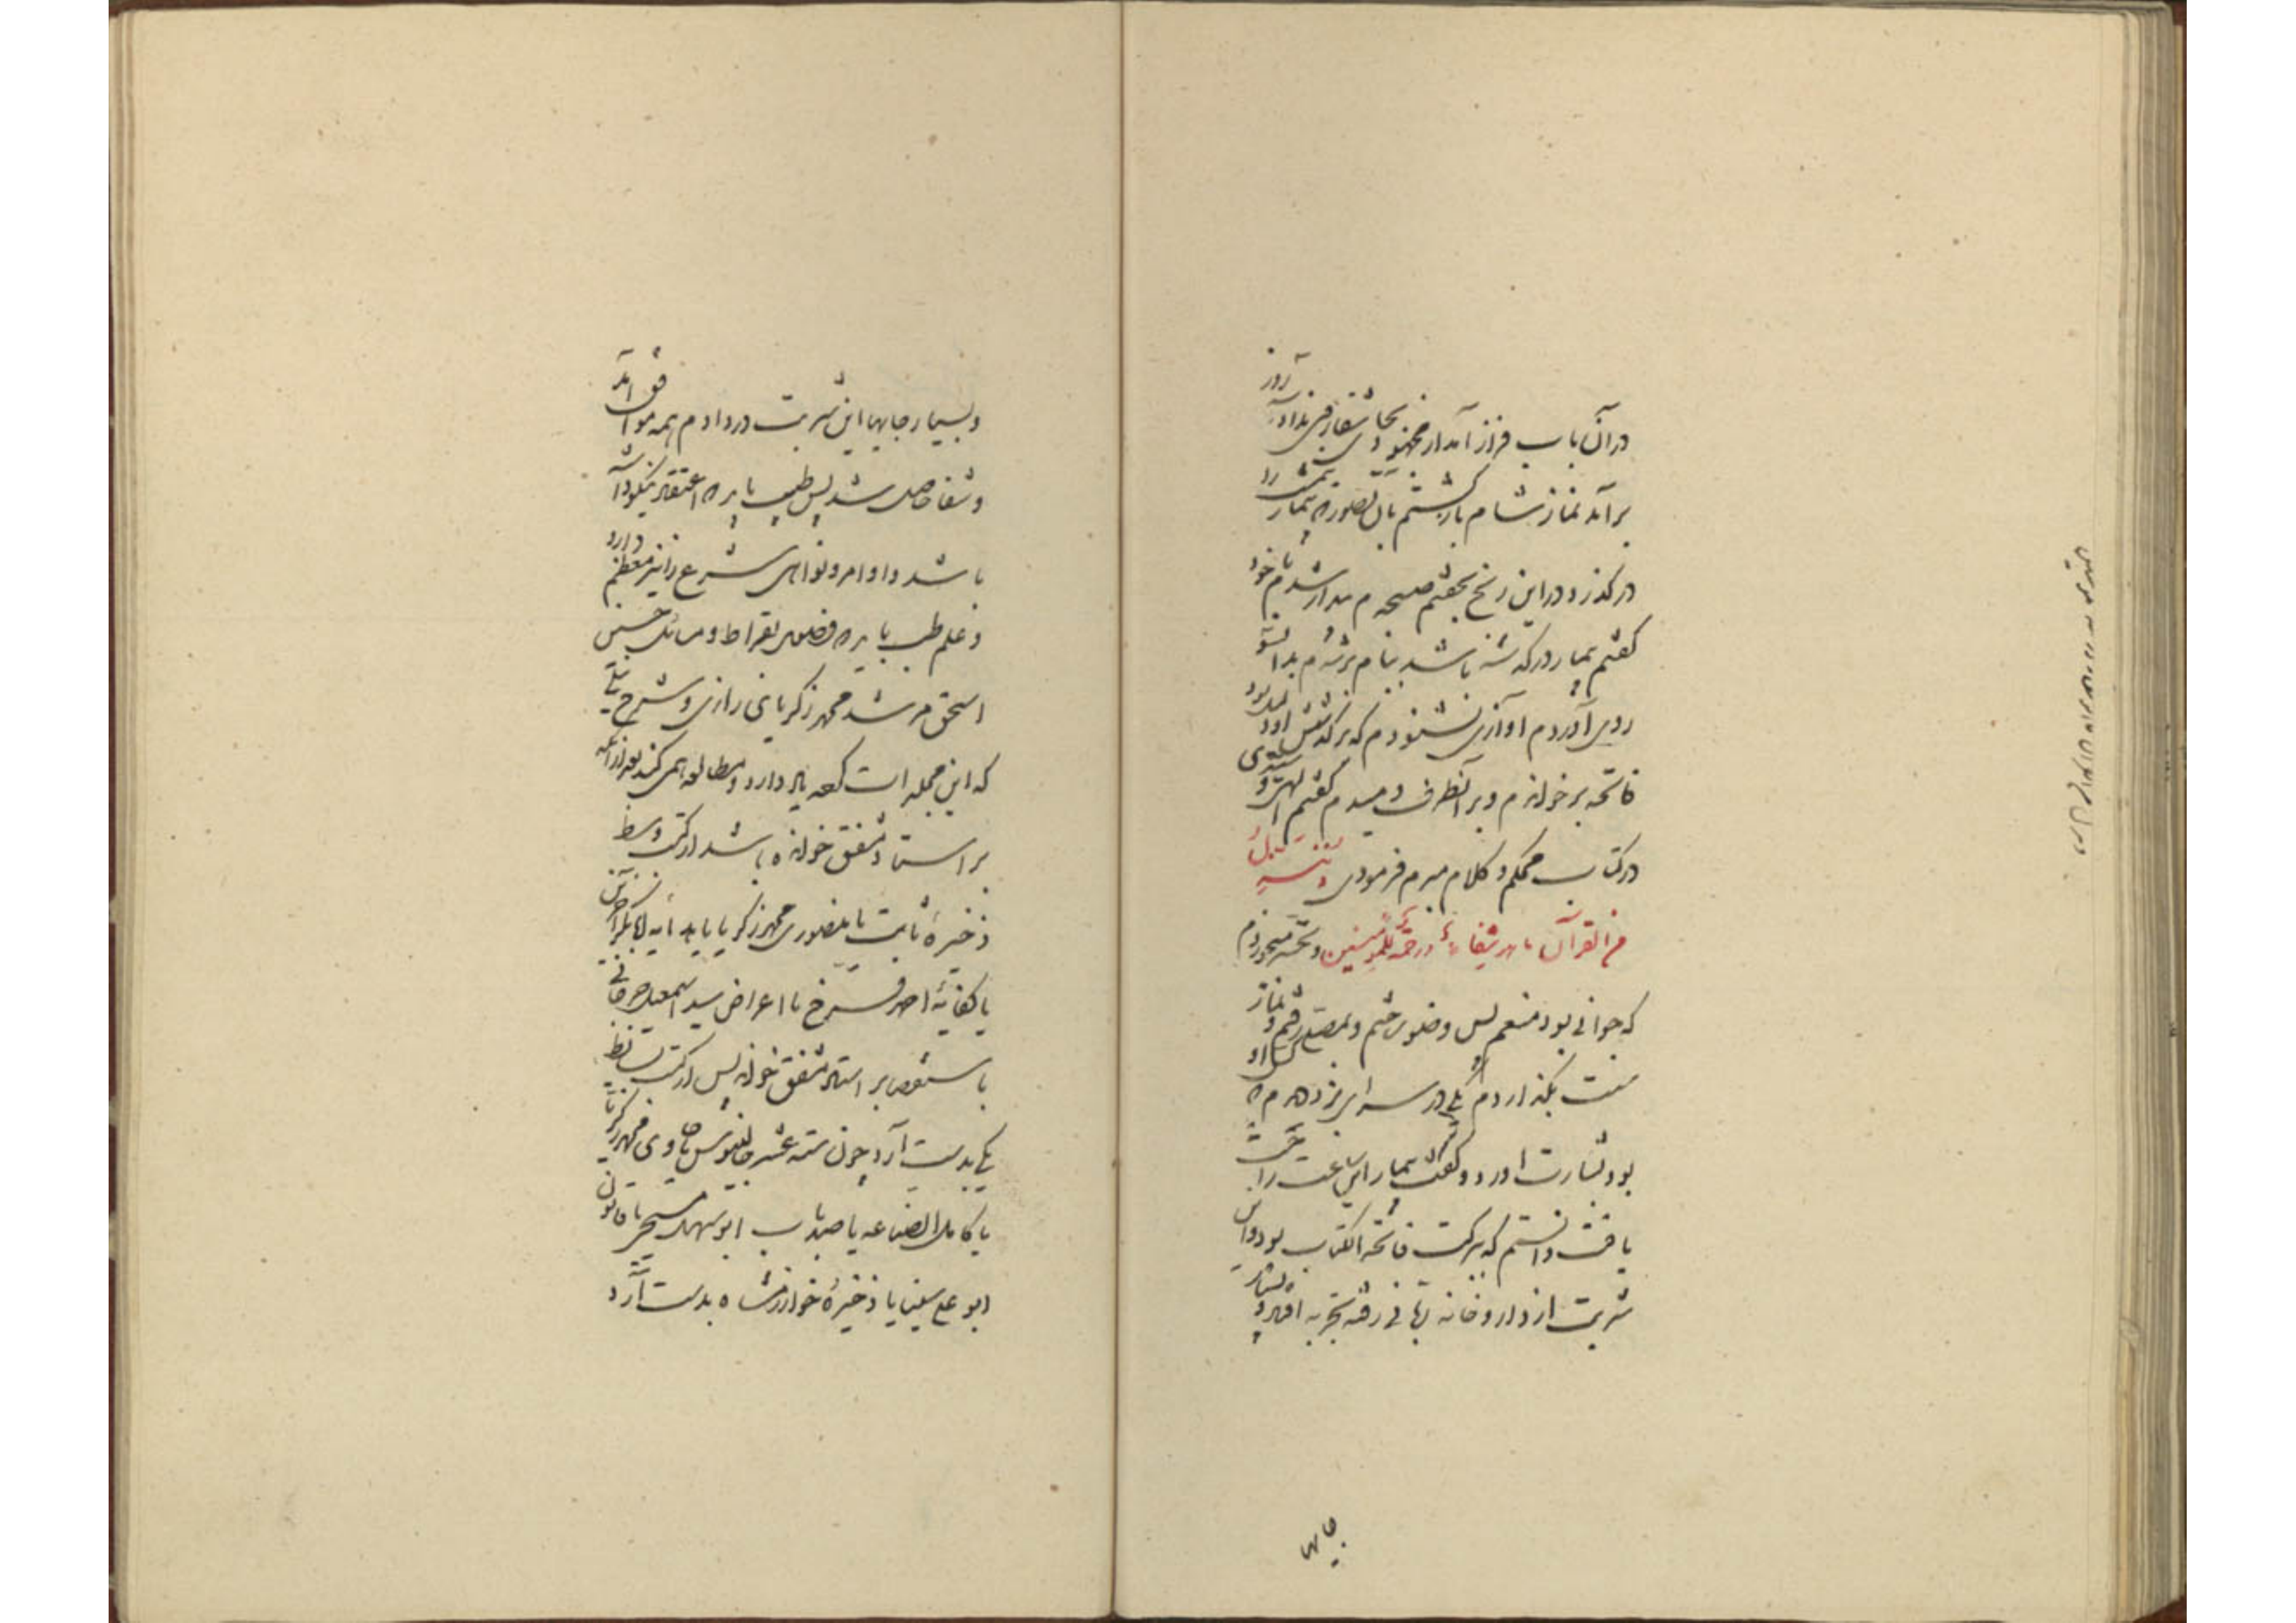 در آن باب فراز آمد از مجهود بجای شفا فرمی نداد آنروز
برآمد نماز شام بازگشتم بآن تصور که بیمار شب را
درگذرد در این رنج بخفتم صبحدم بیدار شدم با خود
گفتم بیمار درگذشته باشد ببام برشدم بدانسو
روی آوردم آوازی نشنودم که برگذشتن او دلیل بود
فاتحه برخواندم و بر آنطرف دمیدم گفتم الهی و سیدی تو
در کتاب محکم و کلام مبرم فرمودی و ننزل
من القرآن ما هو شفاء و رحمة للمؤمنین و تحسر میخوردم
که جوانی بود منعم پس وضو ساختم و بمصلی رفتم و نماز
سنت بگذاردم یکی در سرای بزد هم کس او
بود بشارت آورد و گفت بیمار این ساعت راحت
یافت دانستم که ببرکت فاتحة الکتاب بود و این
شربت از داروخانه ربانی رفته تجربه افتاد و
بجایها
و بسیار جایها این شربت در دادم همه موافق آمد
و شفا حاصل شد پس طبیب باید که اعتقاد نیکو داشته
باشد و اوامر و نواهی شرع را نیز معظم دارد
و علم طب باید که فصول بقراط و مسائل حنین
اسحق مرشد محمد زکریای رازی و شرح نیلی
که این جمله است که یاد دارد و مطالعه همی کند بعد از آنکه
بر استاد مشفق خوانده باشد از کتب وسط
ذخیره ثابت یا منصوری محمد زکریا یا هدایه ابوبکر اخوینی
یا کفایه احمد فرخ یا اغراض سید اسمعیل جرجانی
باستقصا بر استاد مشفق خواند پس از کتب بسائط
یکی بدست آرد چون سته عشر جالینوس یا حاوی محمد زکریا
یا کامل الصناعه یا صد باب ابو سهل مسیحی یا قانون
ابو علی سینا یا ذخیره خوارزمشاه بدست آرد